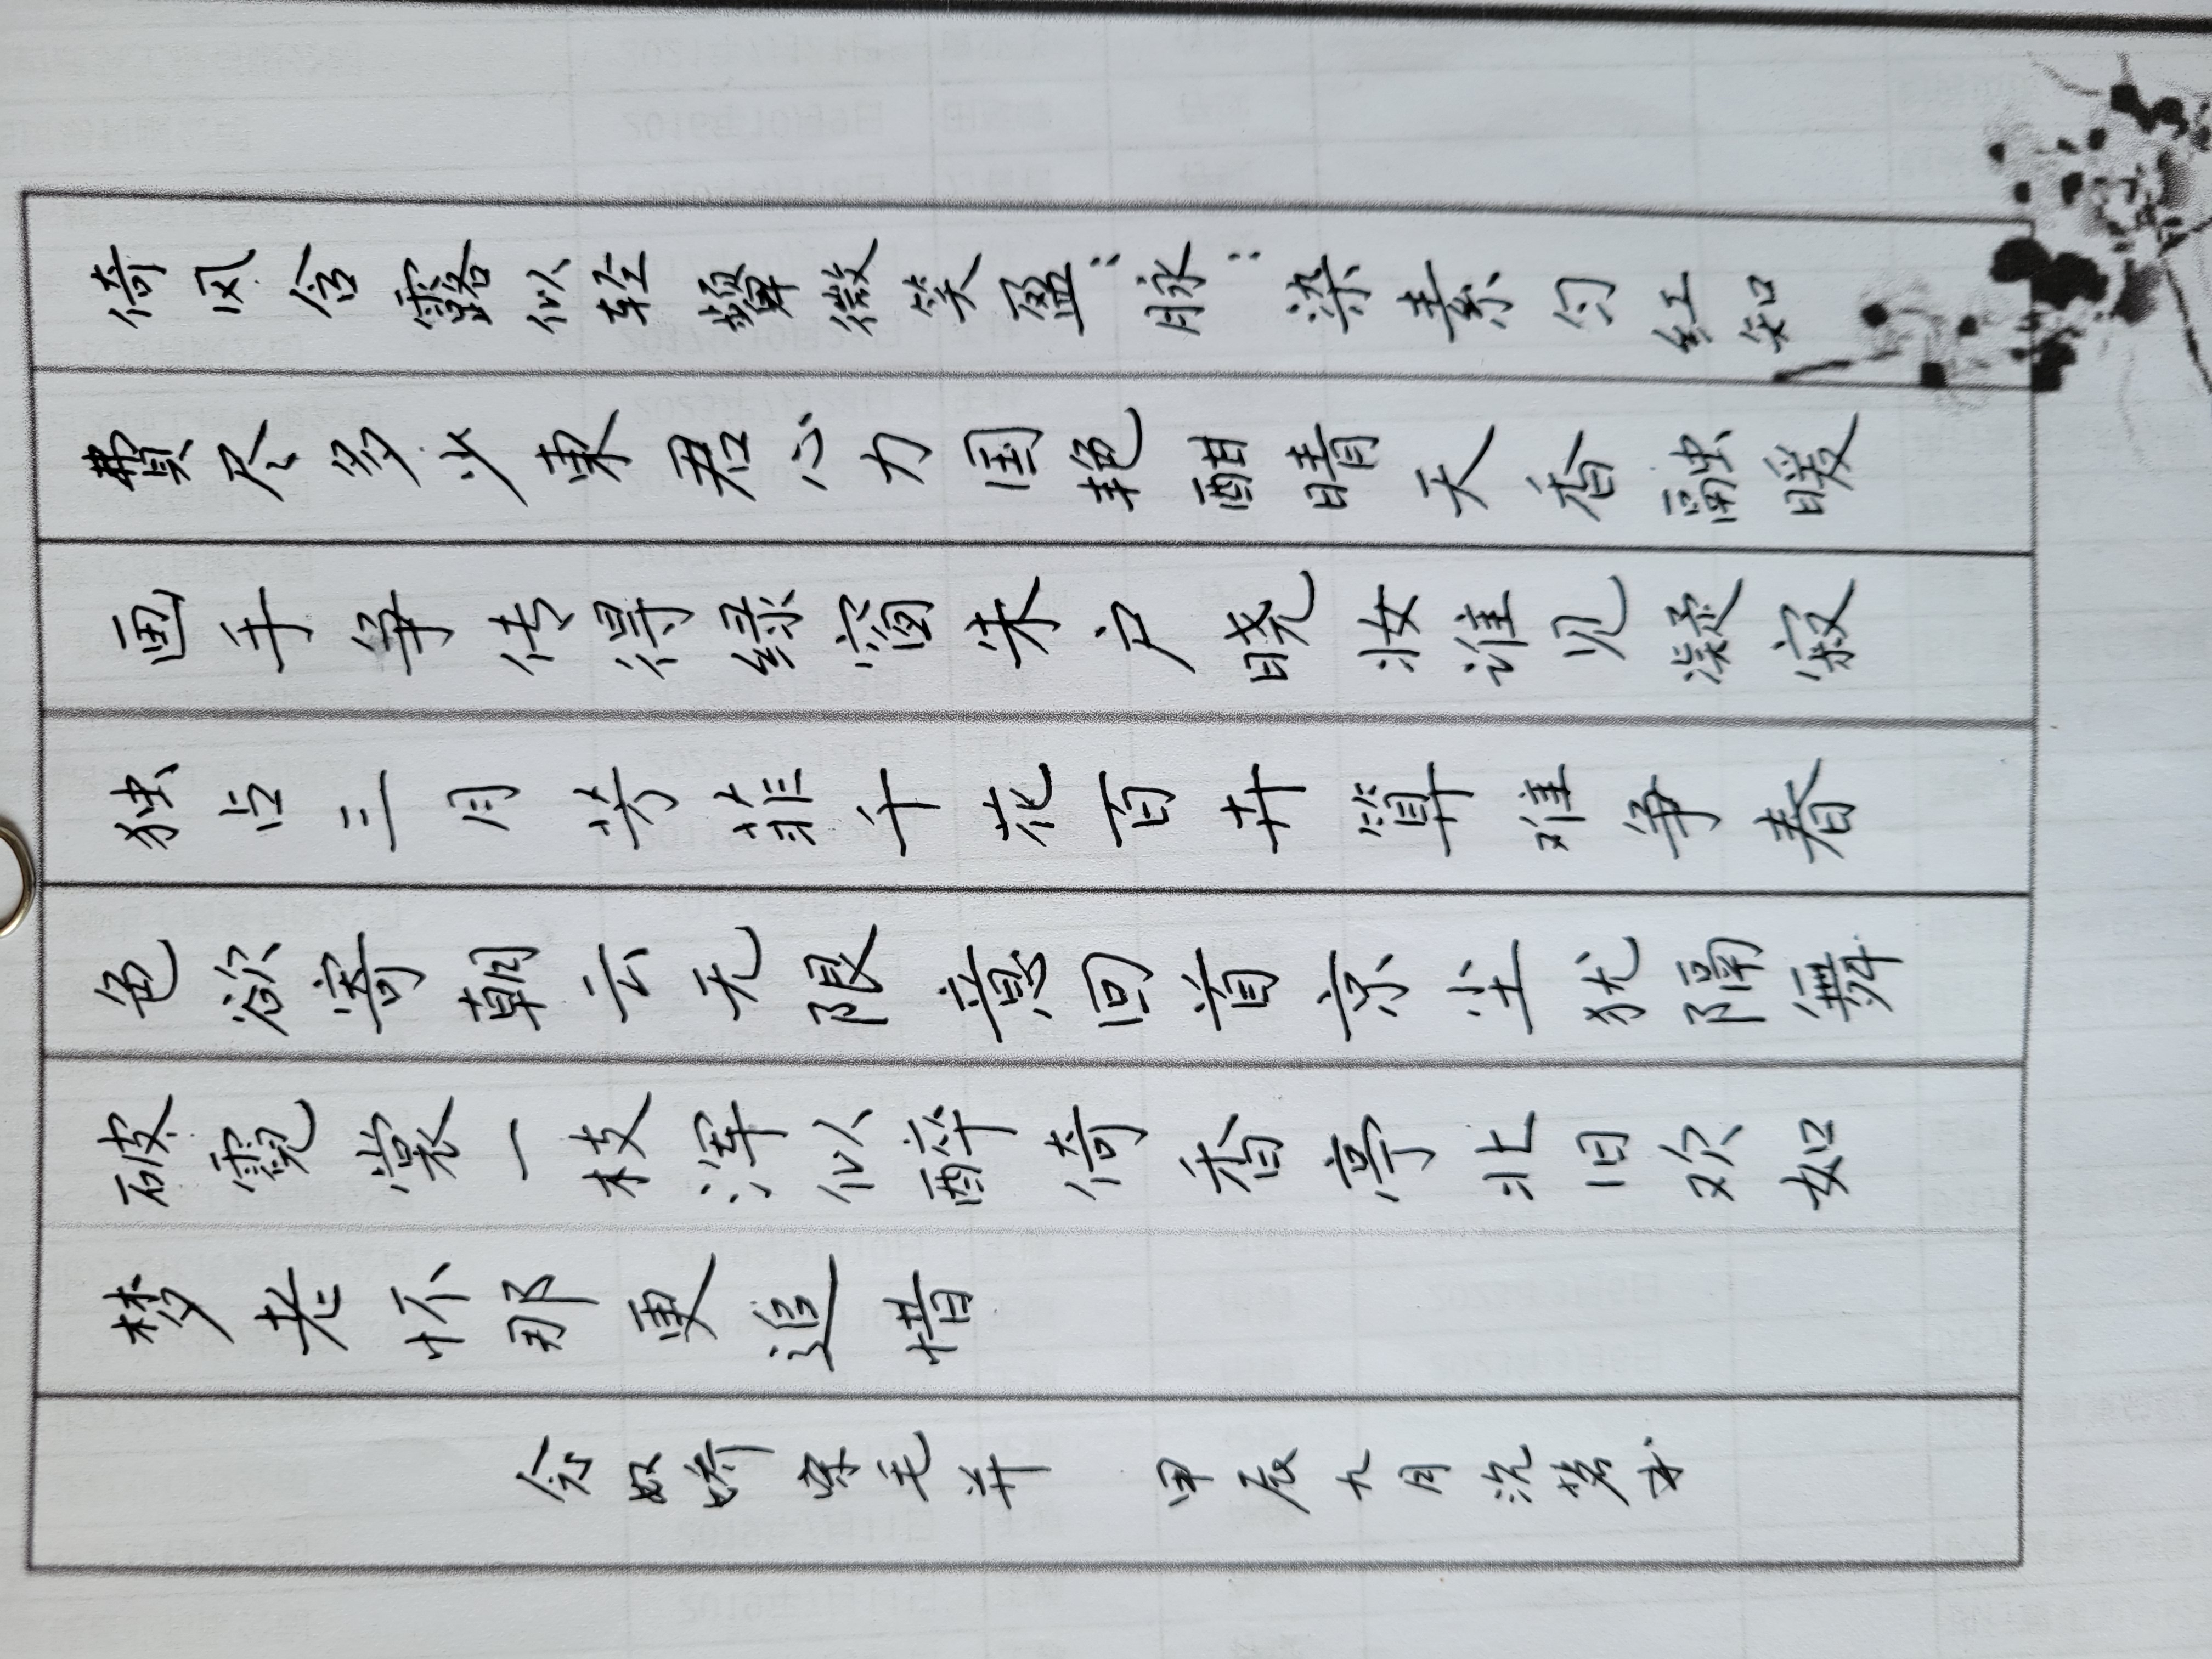 倚风含露似轻颦微笑盈:脉:染素匀红知
費尽多少東君心力国艳酣晴天香融暖
画手争传得绿窗朱户晓妆谁见凝寂
独占三月芳菲千花百卉算难争春
色欲寄朝云无限意回首京尘犹隔舞
破霓裳一枝浑似醉倚香亭北旧欢如
梦老怀那更追惜
念奴娇宋毛并 甲辰九月沉茗书